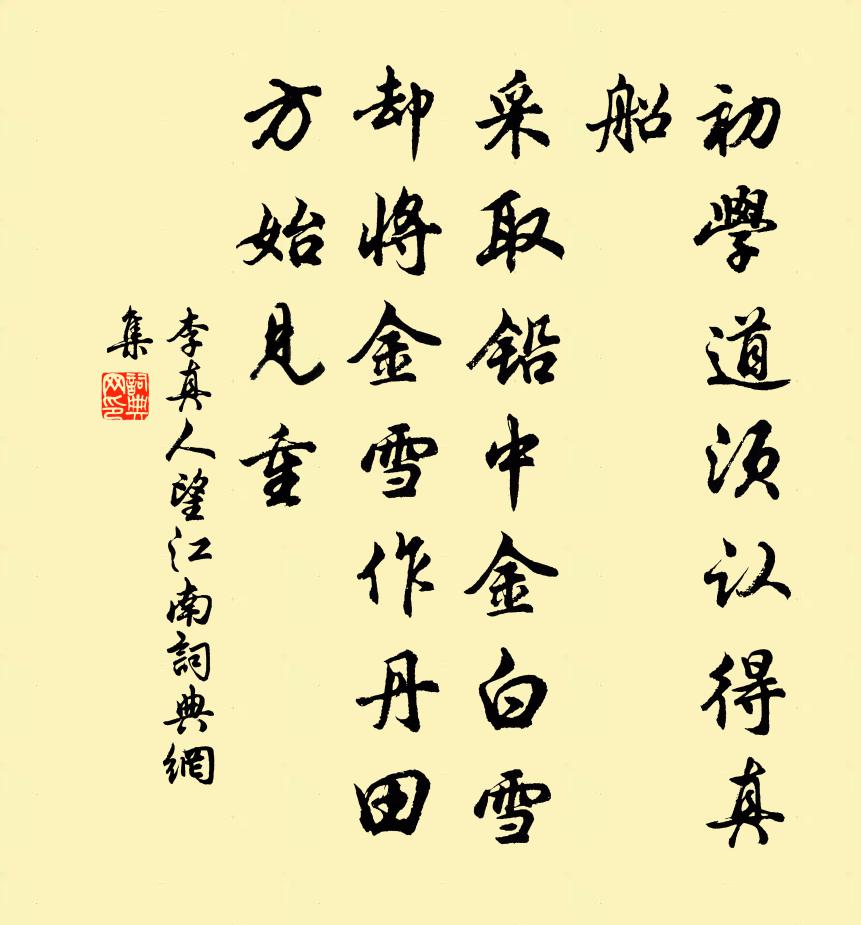 初學道须认得真
船
采取铅中金白雪
却將金雪作丹田
方始见重
李真人望江南詞典網
集
詞典网印